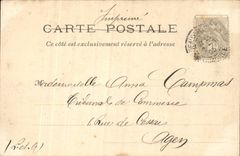 Imprimé
CARTE POSTALE
Ce côté est exclusivement réservé à l'adresse
Mademoiselle Anna Campmas
Tribunal de Commerce
Rue de
Agen